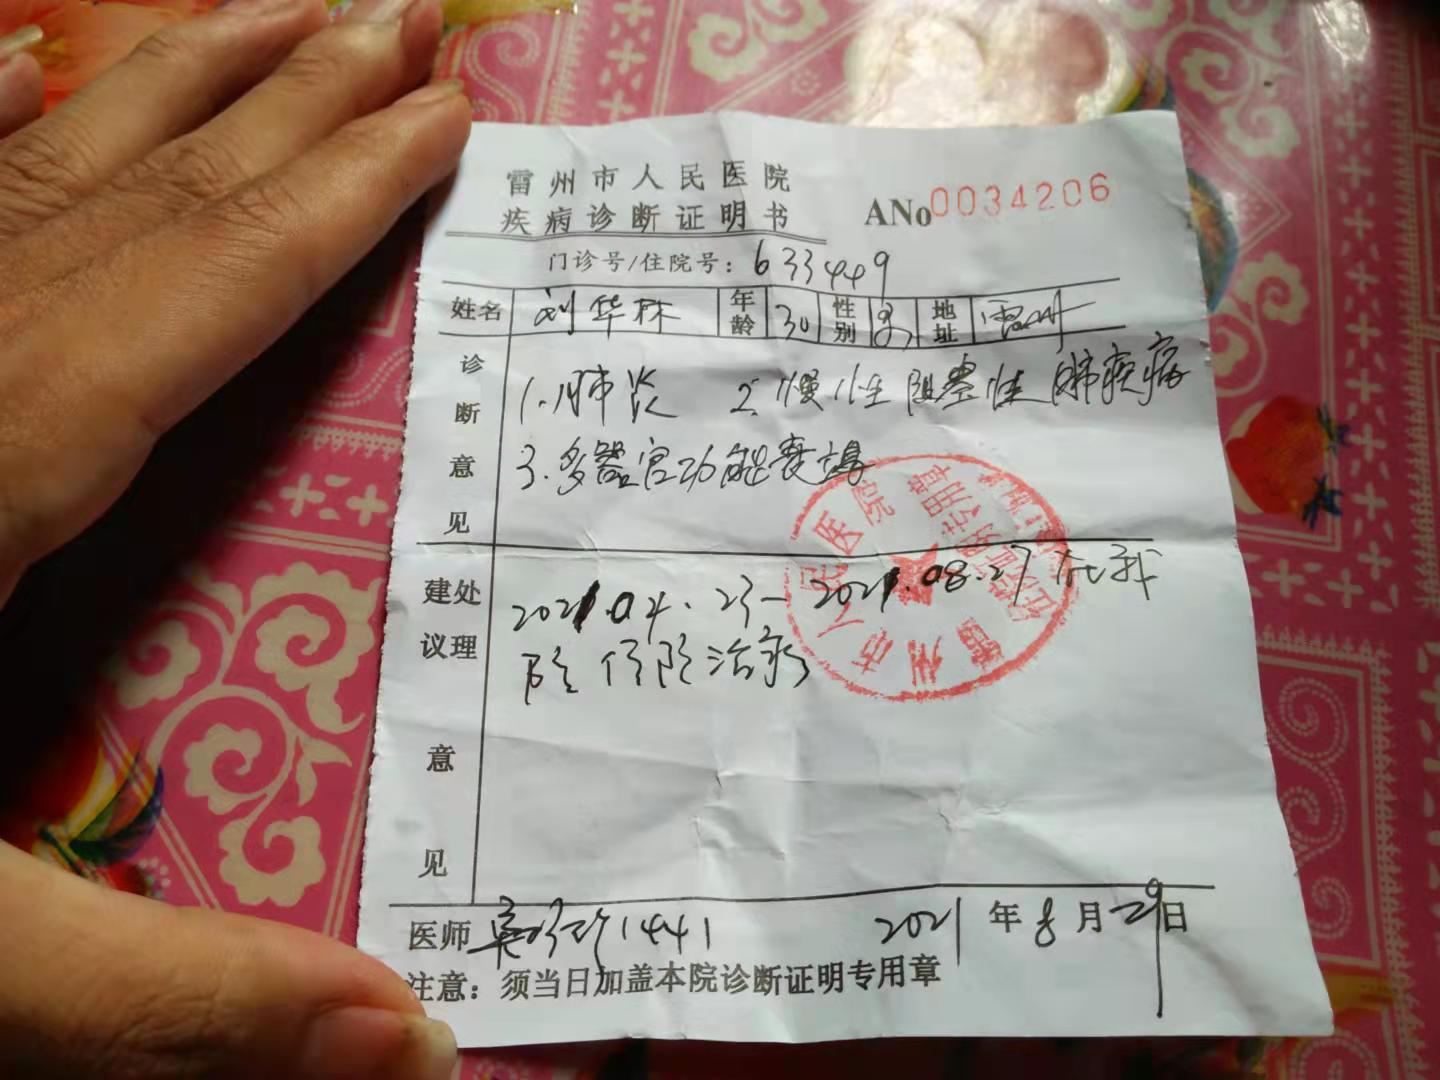 雷州市人民医院
疾病诊断证明书
ANo0034206
门诊号/住院号：633449
姓名 刘华林 年龄 30 性别 男 地址 雷州
诊断意见
1.肺炎 2.慢性阻塞性肺疾病
3.多器官功能衰竭
建议处理意见
2021.04.23-2021.08.27在我
院住院治疗
雷州市人民医院
医师 1441 2021年8月29日
注意：须当日加盖本院诊断证明专用章